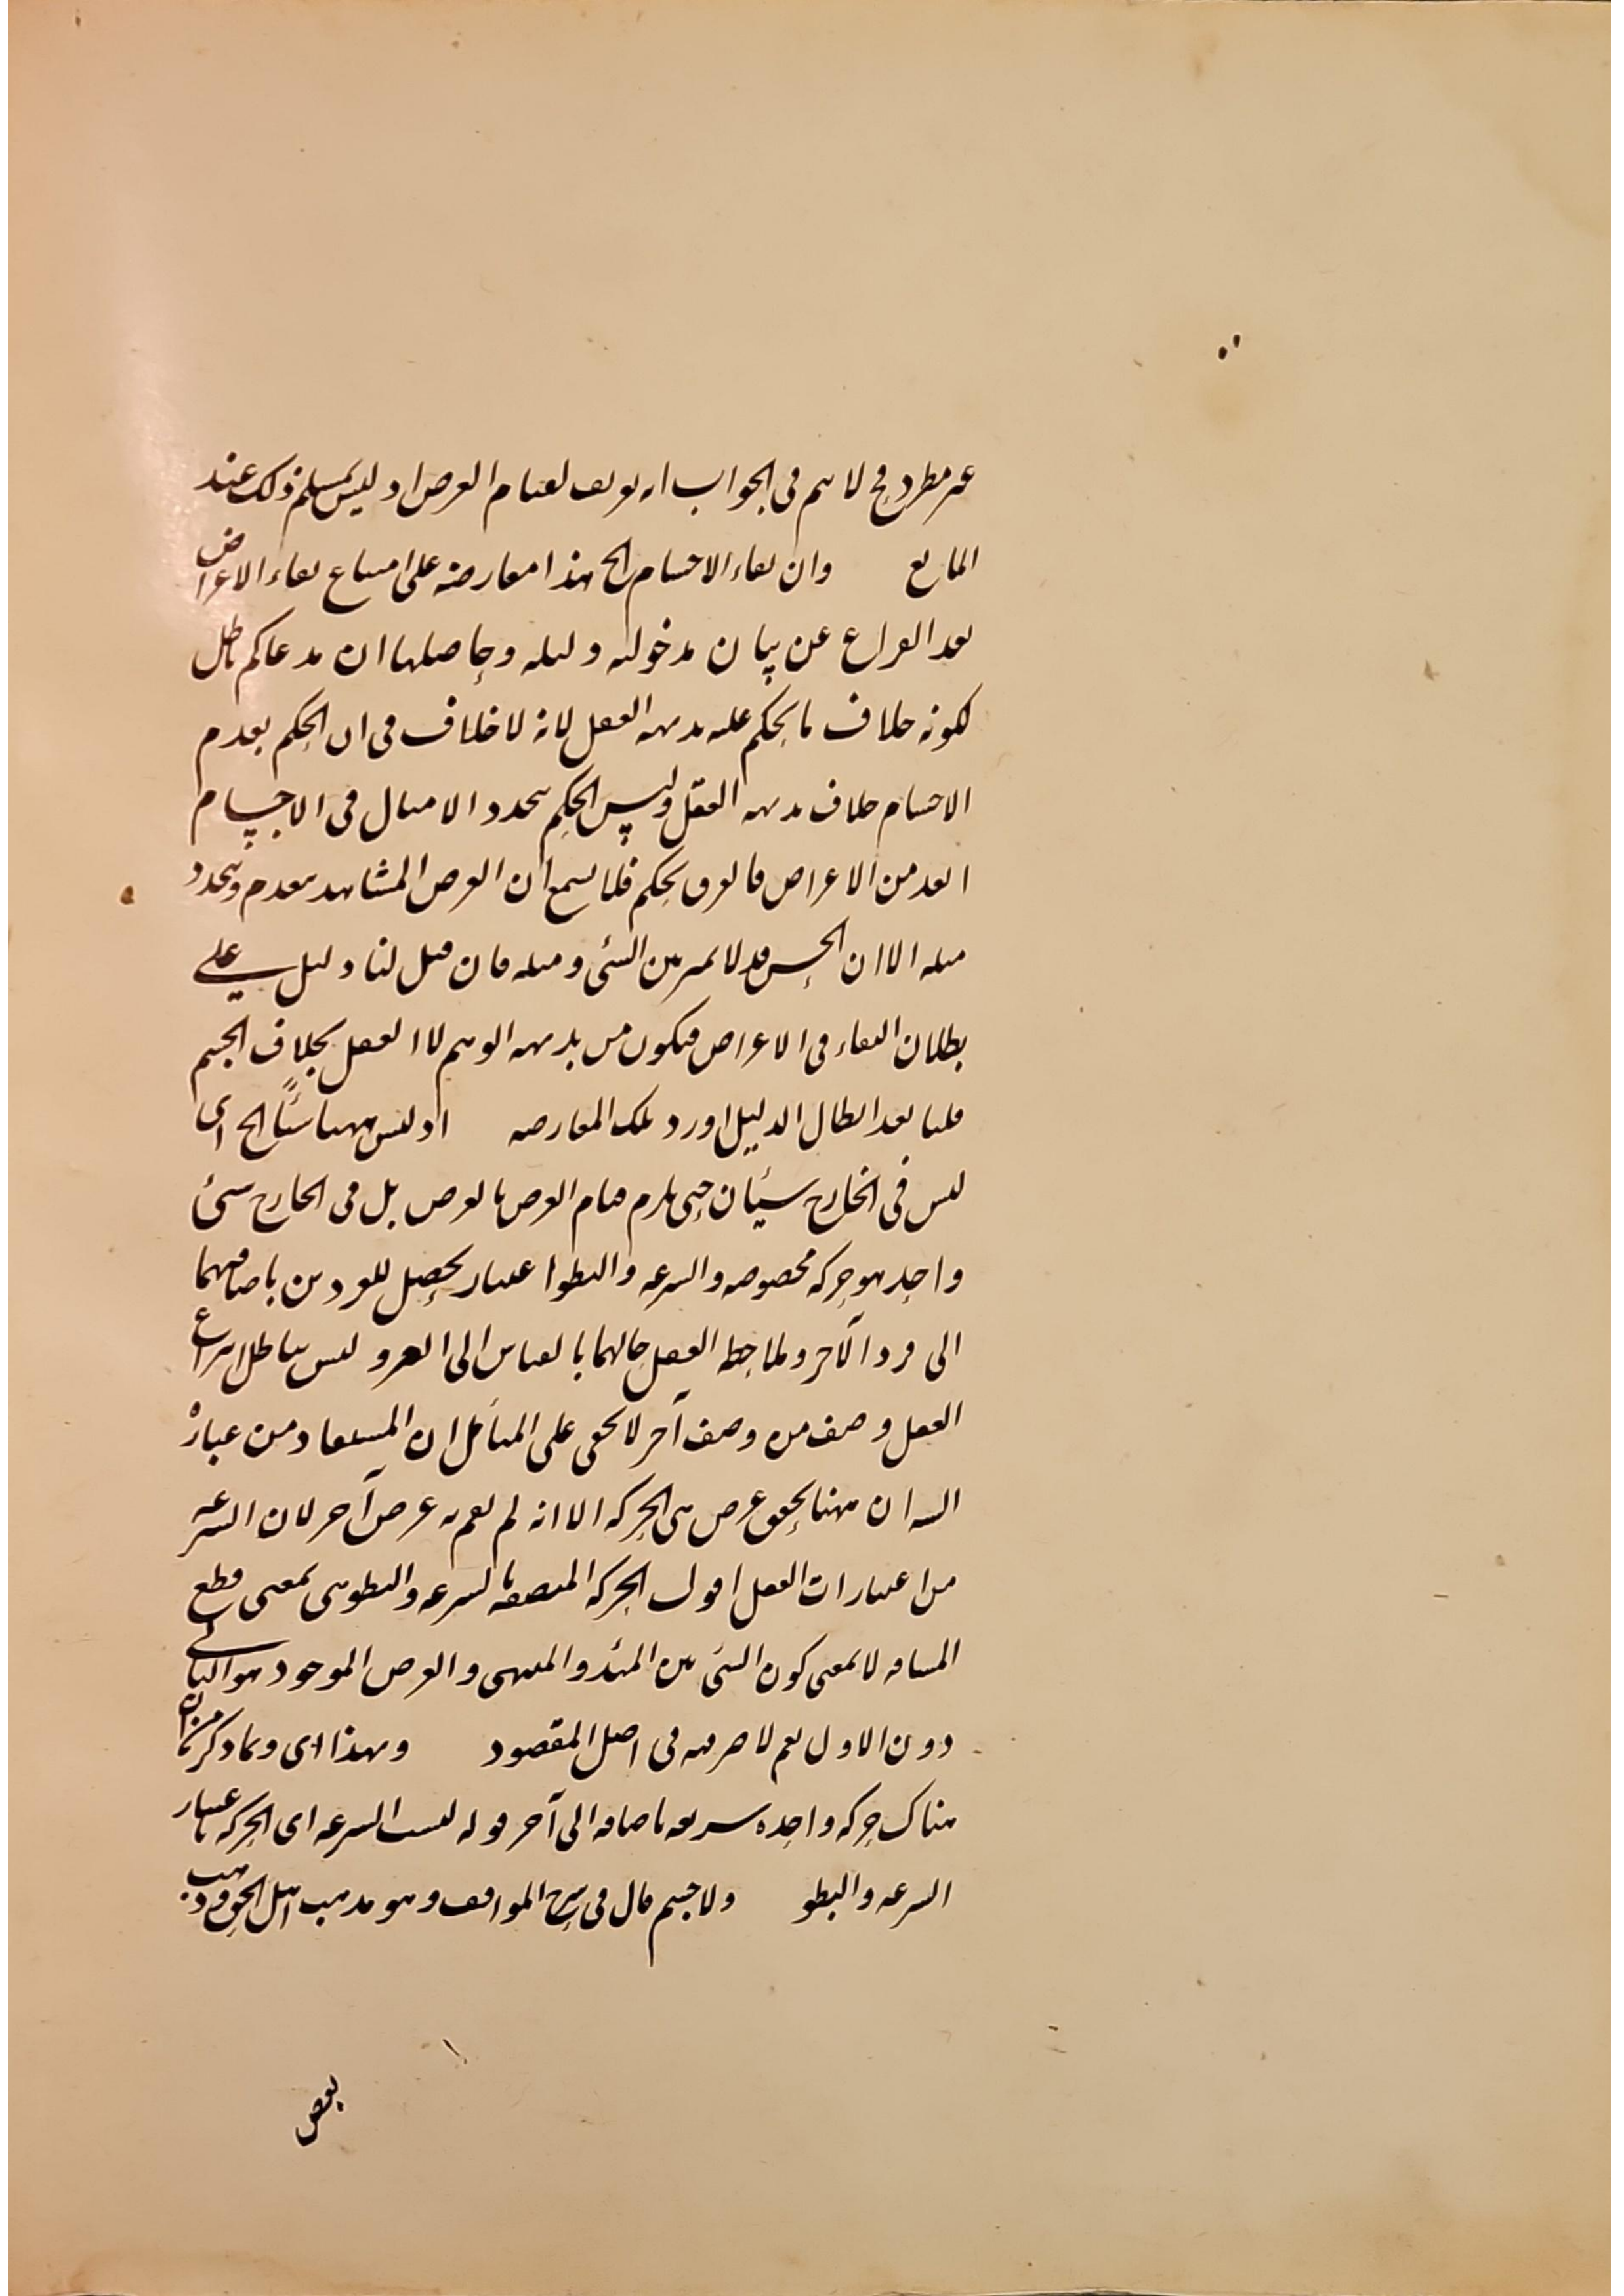 غير مطرد فح لا يتم في الجواب انه تعريف لقيام العرض اذ ليس بمسلم ذلك عند
المانع وان بقاء الاجسام الخ هذا معارضة على امتناع بقاء الاعراض
بعد الفراغ عن بيان مدخولية دليله وحاصلها ان مدعاكم باطل
لكونه خلاف ما يحكم عليه بديهة العقل لانه لا خلاف في ان الحكم بعدم
الاجسام خلاف بديهة العقل وليس الحكم بتجدد الامثال في الاجسام
ابعد من الاعراض فالفرق تحكم فلا يسمع ان العرض المشاهد ينعدم ويتجدد
مثله الا ان الحس قد لا يميز بين الشئ ومثله فان قيل لنا دليل على
بطلان البقاء في الاعراض فيكون من بديهة الوهم لا العقل بخلاف الجسم
قلنا بعد ابطال الدليل اورد تلك المعارضة اذ ليس ههنا شئًا الخ اى
ليس في الخارج شيئان حتى يلزم قيام العرض بالعرض بل في الخارج شئ
واحد هو حركة مخصوصة والسرعة والبطوا عتبار يحصل للفردين باضافتهما
الى فرد الآخر وملاحظة العقل حالهما بالقياس الى الغير وليس بباطل انتزاع
العقل وصف من وصف آخر لا يخفى على المتأمل ان المستفاد من عبارة
الشه ان ههنا تحقق عرض هى الحركة الا انه لم يقم به عرض آخر لان السرعة
من اعتبارات العقل اقول الحركة المتصفة بالسرعة والبطوهى بمعنى قطع
المسافة لا بمعنى كون الشئ بين المبدء والمنتهى والعرض الموجود هو الثانى
دون الاول نعم لا ضر فيه في اصل المقصود وبهذا اى وبما ذكر من ان
هناك حركة واحدة سريعة باضافة الى آخر قوله ليست السرعة اى الحركة باعتبار
السرعة والبطو ولا جسم قال في شرح المواقف وهو مذهب اهل الحق وذهب
بعض